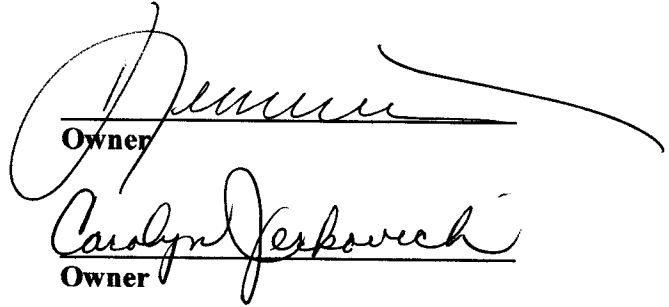 Owner
Carolyn Jerkovich
Owner